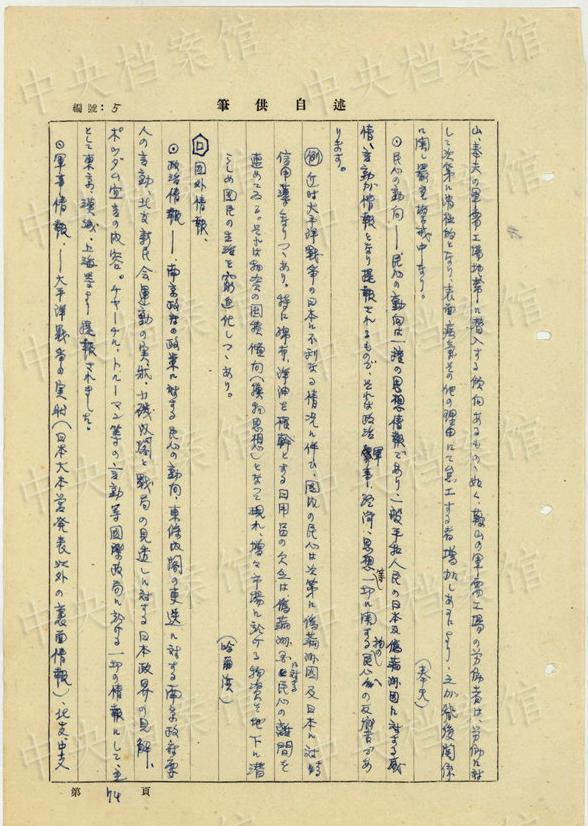 中央档案馆
筆供自述
編號：5
山、奉天の軍需工場地帯に潜入する傾向あるものゝ如く、鞍山の軍需工場の労働者は、労働に対
して次第に消極的となり、表面病気その他の理由にて怠工する者増加しあるにより、之が背後関係
に関し厳重警戒中なり。
（奉天）
◎民心の動向——民心の動向は一種の思想情報であり、一般平和人民の日本及偽満洲国に対する感
情、言動が情報となり提報されるもので、それは政治、軍事、経済、思想等一切に関する民心の反響であ
ります。
例 近時大平洋戦争の日本に不利なる情況に伴ひ、国内の民心は次第に偽満洲国及日本に対する
信用薄くなりつゝあり。特に綿布、洋油を根幹とする日用品の欠乏は偽満洲国に対する民心の離間を
速めてゐる。それは物資の囤積傾向（換物思想）となって現れ、増々市場に於ける物資を地下に潜
らしめ国民の生活を窮迫化しつゝあり。
（哈爾濱）
口 国外情報、
◎政治情報——、南京政府の政策に対する民心の動向、東條内閣の更迭に対する南京政府要
人の言動、北支新民会運動の実状、小磯内閣と戦局の見透しに対する日本政界の見解、
ポツダム宣言の内容。チャーチル、トルーマン等の言動等国際政局に於ける一切の情報にして主
として東京、漢城、上海等より提報されました。
◎軍事情報、——大平洋戦争の実射（日本大本営発表以外の裏面情報）、北支、中支
第 74 頁